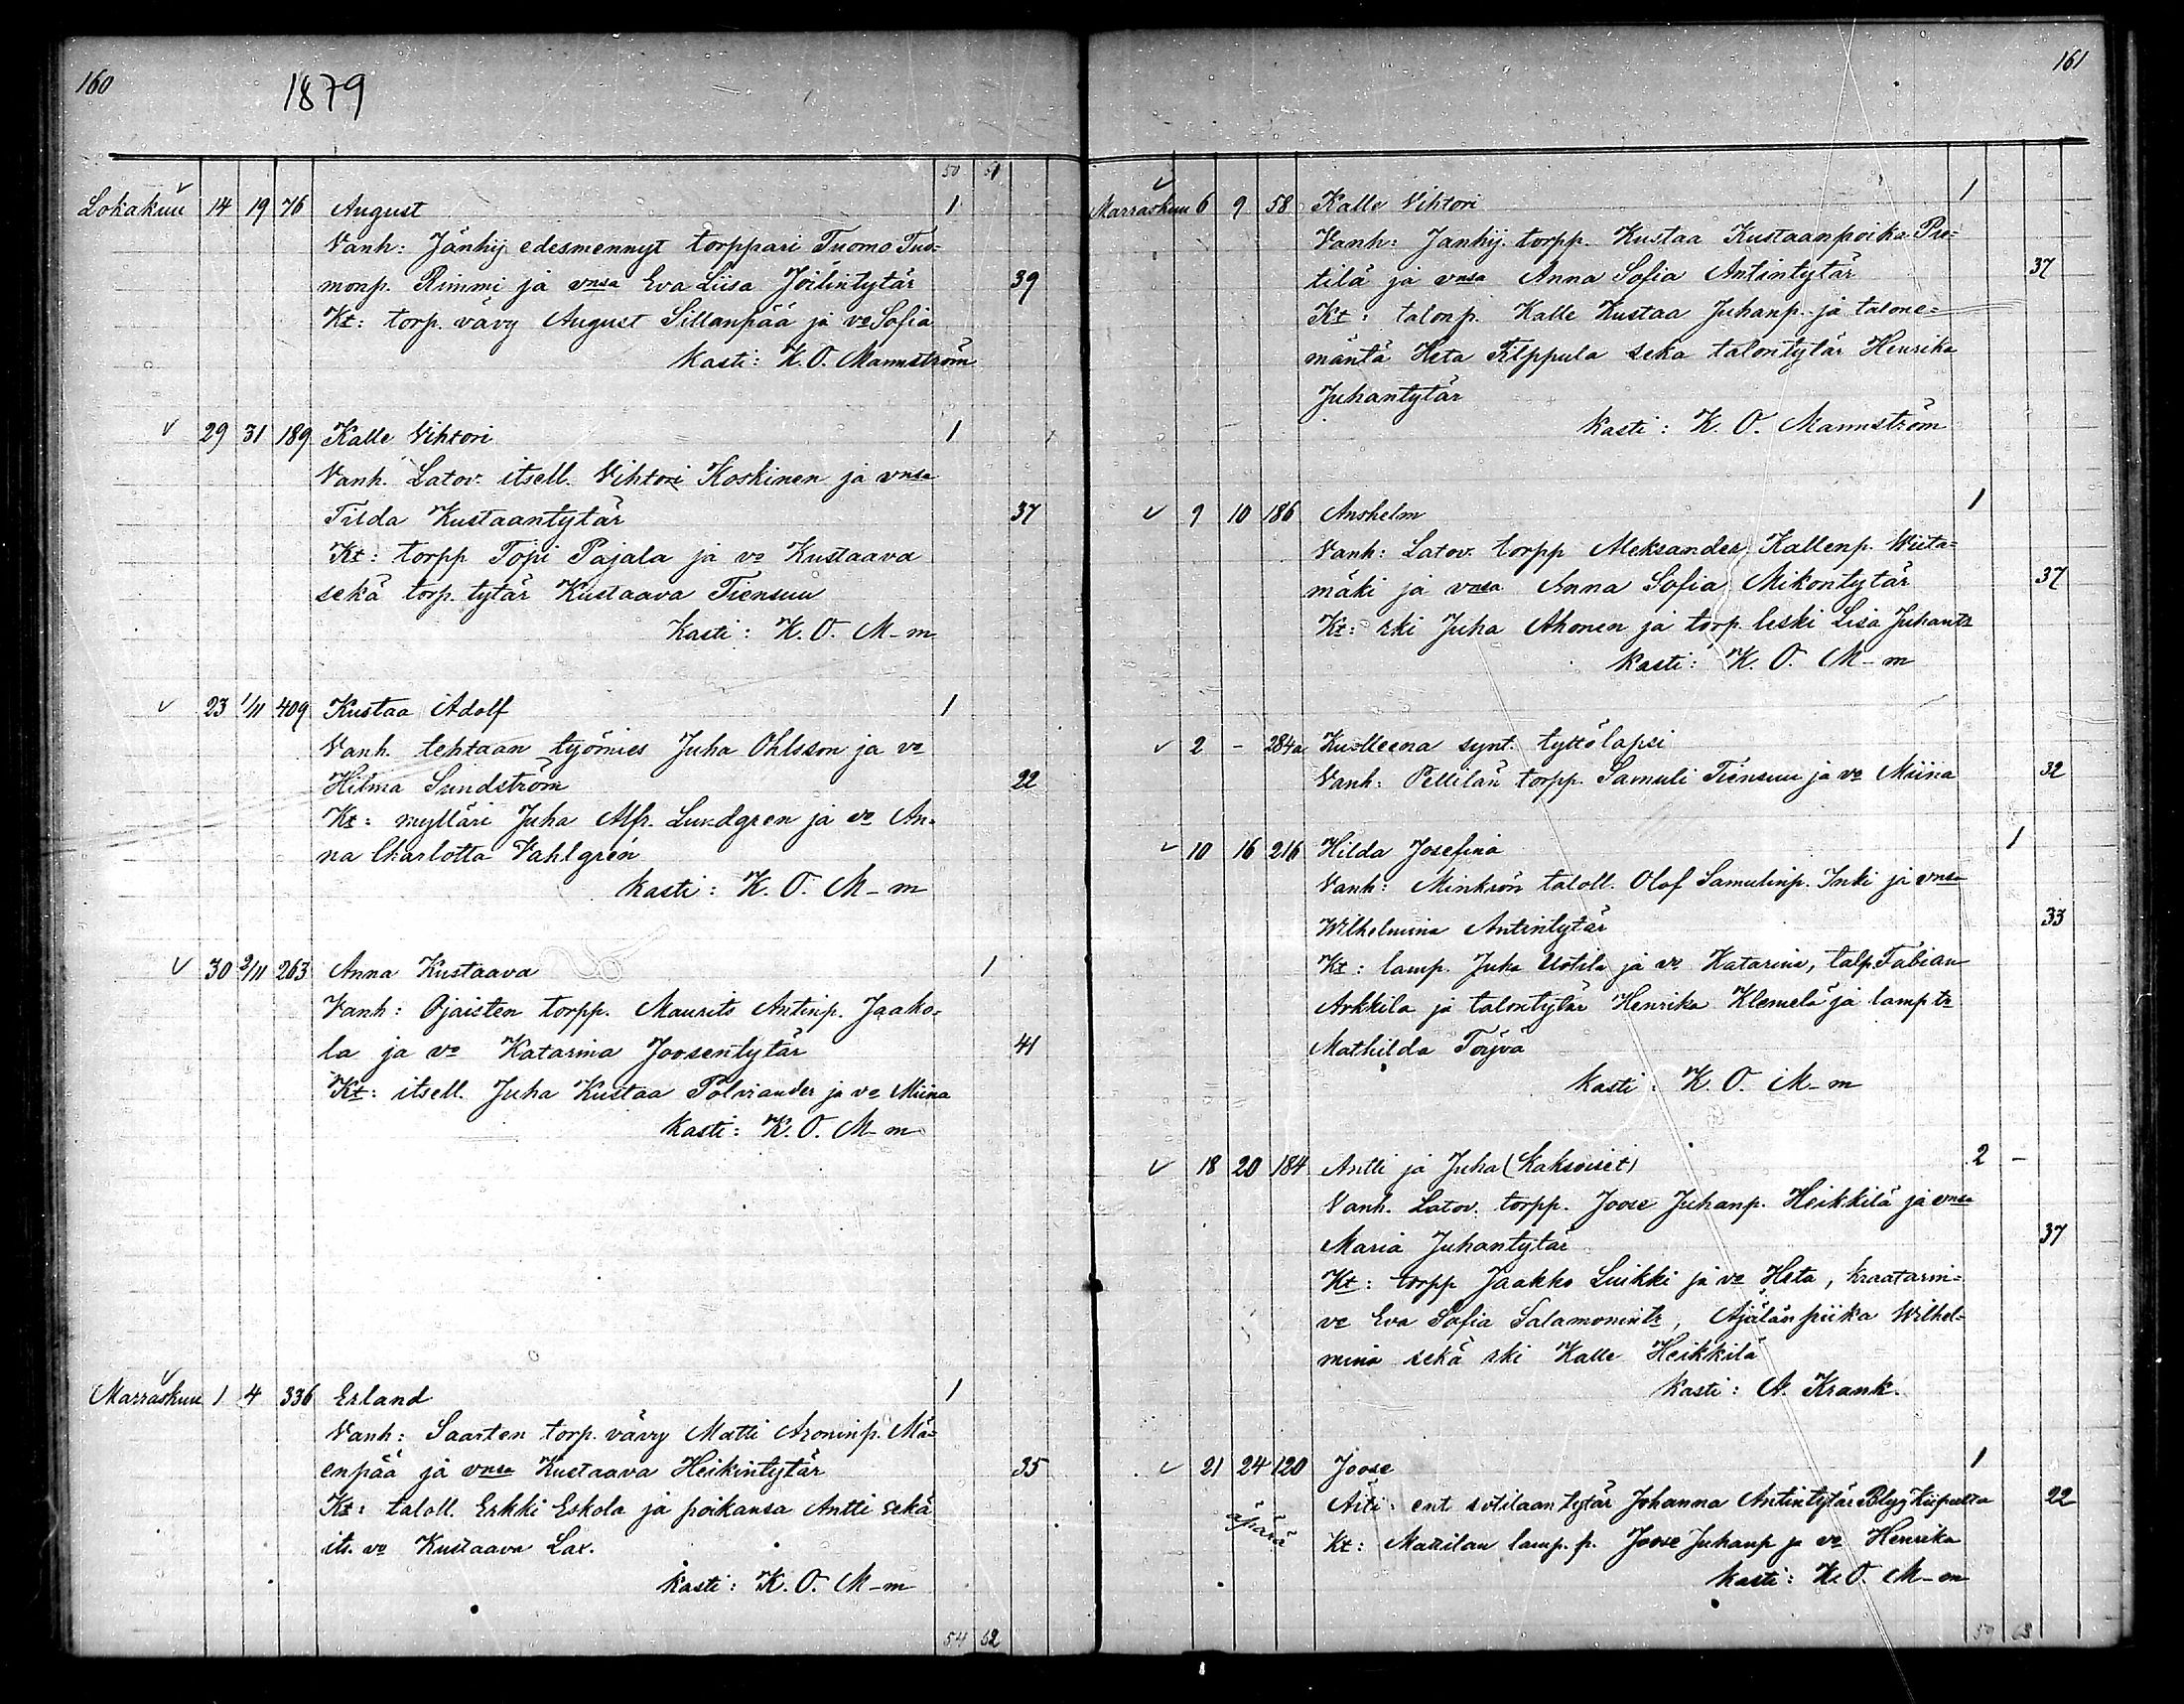 160
1879
50 51
Lokakuu 14 19 76 August 1
Vanh: Jänhij edesmennyt torppari Tuomo Tuo-
monp. Rimmi ja vnsa Eva Liisa Joilintytär 39
Kt: torp. vävy August Sillanpää ja vo Sofia
Kasti: K. O. Mannström
29 31 189 Kalle Vihtori 1
Vanh. Latov. itsell. Vihtori Koskinen ja vnsa
Tilda Kustaantytär 37
Kt: torpp Topi Pajala ja vo Kustaava
sekä torp. tytär Kustaava Tiensuu
Kasti: K. O. M-m
23 1/11 409 Kustaa Adolf 1
Vanh. tehtaan työmies Juha Ohlsson ja vo
Hilma Sundström 22
Kt: mylläri Juha Alfr. Lundgren ja vo An-
na Charlotta Vahlgrén
Kasti: K. O. M-m
30 2/11 263 Anna Kustaava 1
Vanh: Ojaisten torpp. Maurits Antinp. Jaako-
la ja vo Katarina Joosentytär 41
Kt: itsell. Juha Kustaa Polviander ja vo Miina
Kasti: K. O. M-m
Marraskuu 1 4 336 Erland 1
Vanh: Saarten torp. vävy Matti Aroninp. Mä-
enpää ja vnsa Kustaava Heikintytär 35
Kt: taloll. Erkki Eskola ja poikansa Antti sekä
its. vo Kustaava Lax.
Kasti: K. O. M-m
54 52
161
Marraskuu 6 9 58 Kalle Vihtori 1
Vanh: Janhij. torpp. Kustaa Kustaanpoika Pro-
tilä ja vnsa Anna Sofia Antintytär 37
Kt: talonp. Kalle Kustaa Juhanp. ja talone-
mäntä Heta Filppula sekä talontytär Henrika
Juhantytär
Kasti: K. O. Mannström
9 10 186 Anshelm 1
Vanh: Latov. torpp Aleksander Kallenp. Wiita-
mäki ja vnsa Anna Sofia Mikontytär 37
Kt: rki Juha Ahonen ja torp. leski Lisa Juhantr
Kasti: K. O. M-m
2 - 284a Kuolleena synt. tyttölapsi
Vanh: Pellilän torpp. Samuli Tiensuu ja vo Miina 32
10 16 216 Hilda Josefina 1
Vanh: Minkiön taloll. Olof Samulinp. Inki ja vnsa
Wilhelmina Antintytär 33
Kt: lamp. Juha Uotila ja vo Katarina, talp. Fabian
Arkkila ja talontytär Henrika Klemelä ja lamp tr
Mathilda Töyvä
Kasti: K. O. M-m
18 20 184 Antti ja Juha (Kaksoiset) 2 -
Vanh. Latov. torpp. Joose Juhanp. Heikkilä ja vnsa
Maria Juhantytär 37
Kt: torpp Jaakko Luikki ja vo Heta, kraatarin-
vo Eva Sofia Salamonintr, Ajälän piika Wilhel-
mina sekä rki Kalle Heikkilä
Kasti: A. Krank.
21 24 120 Joose 1
Äiti: ent sotilaan tytär Johanna Antintytär Blyg Kiipulta 22
äpärä
Kt: Mattilan lamp. p. Joose Juhanp ja vo Henrika
Kasti: K. O. M-m
59 53